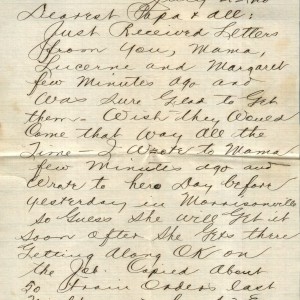 Dearest Papa & all:
Just Received Letters
from You, Mama,
Lucerne and Margaret
few Minutes ago and
Was Sure Glad to Get
them. Wish they Would
Come that Way All the
Time. I Wrote to Mama
few Minutes ago and
Wrote to her Day before
yesterday in Morrisonville
so Guess She Will Get it
Soon after She Gets there
Getting Along OK on
the Job. Copied About
50 Train Orders last